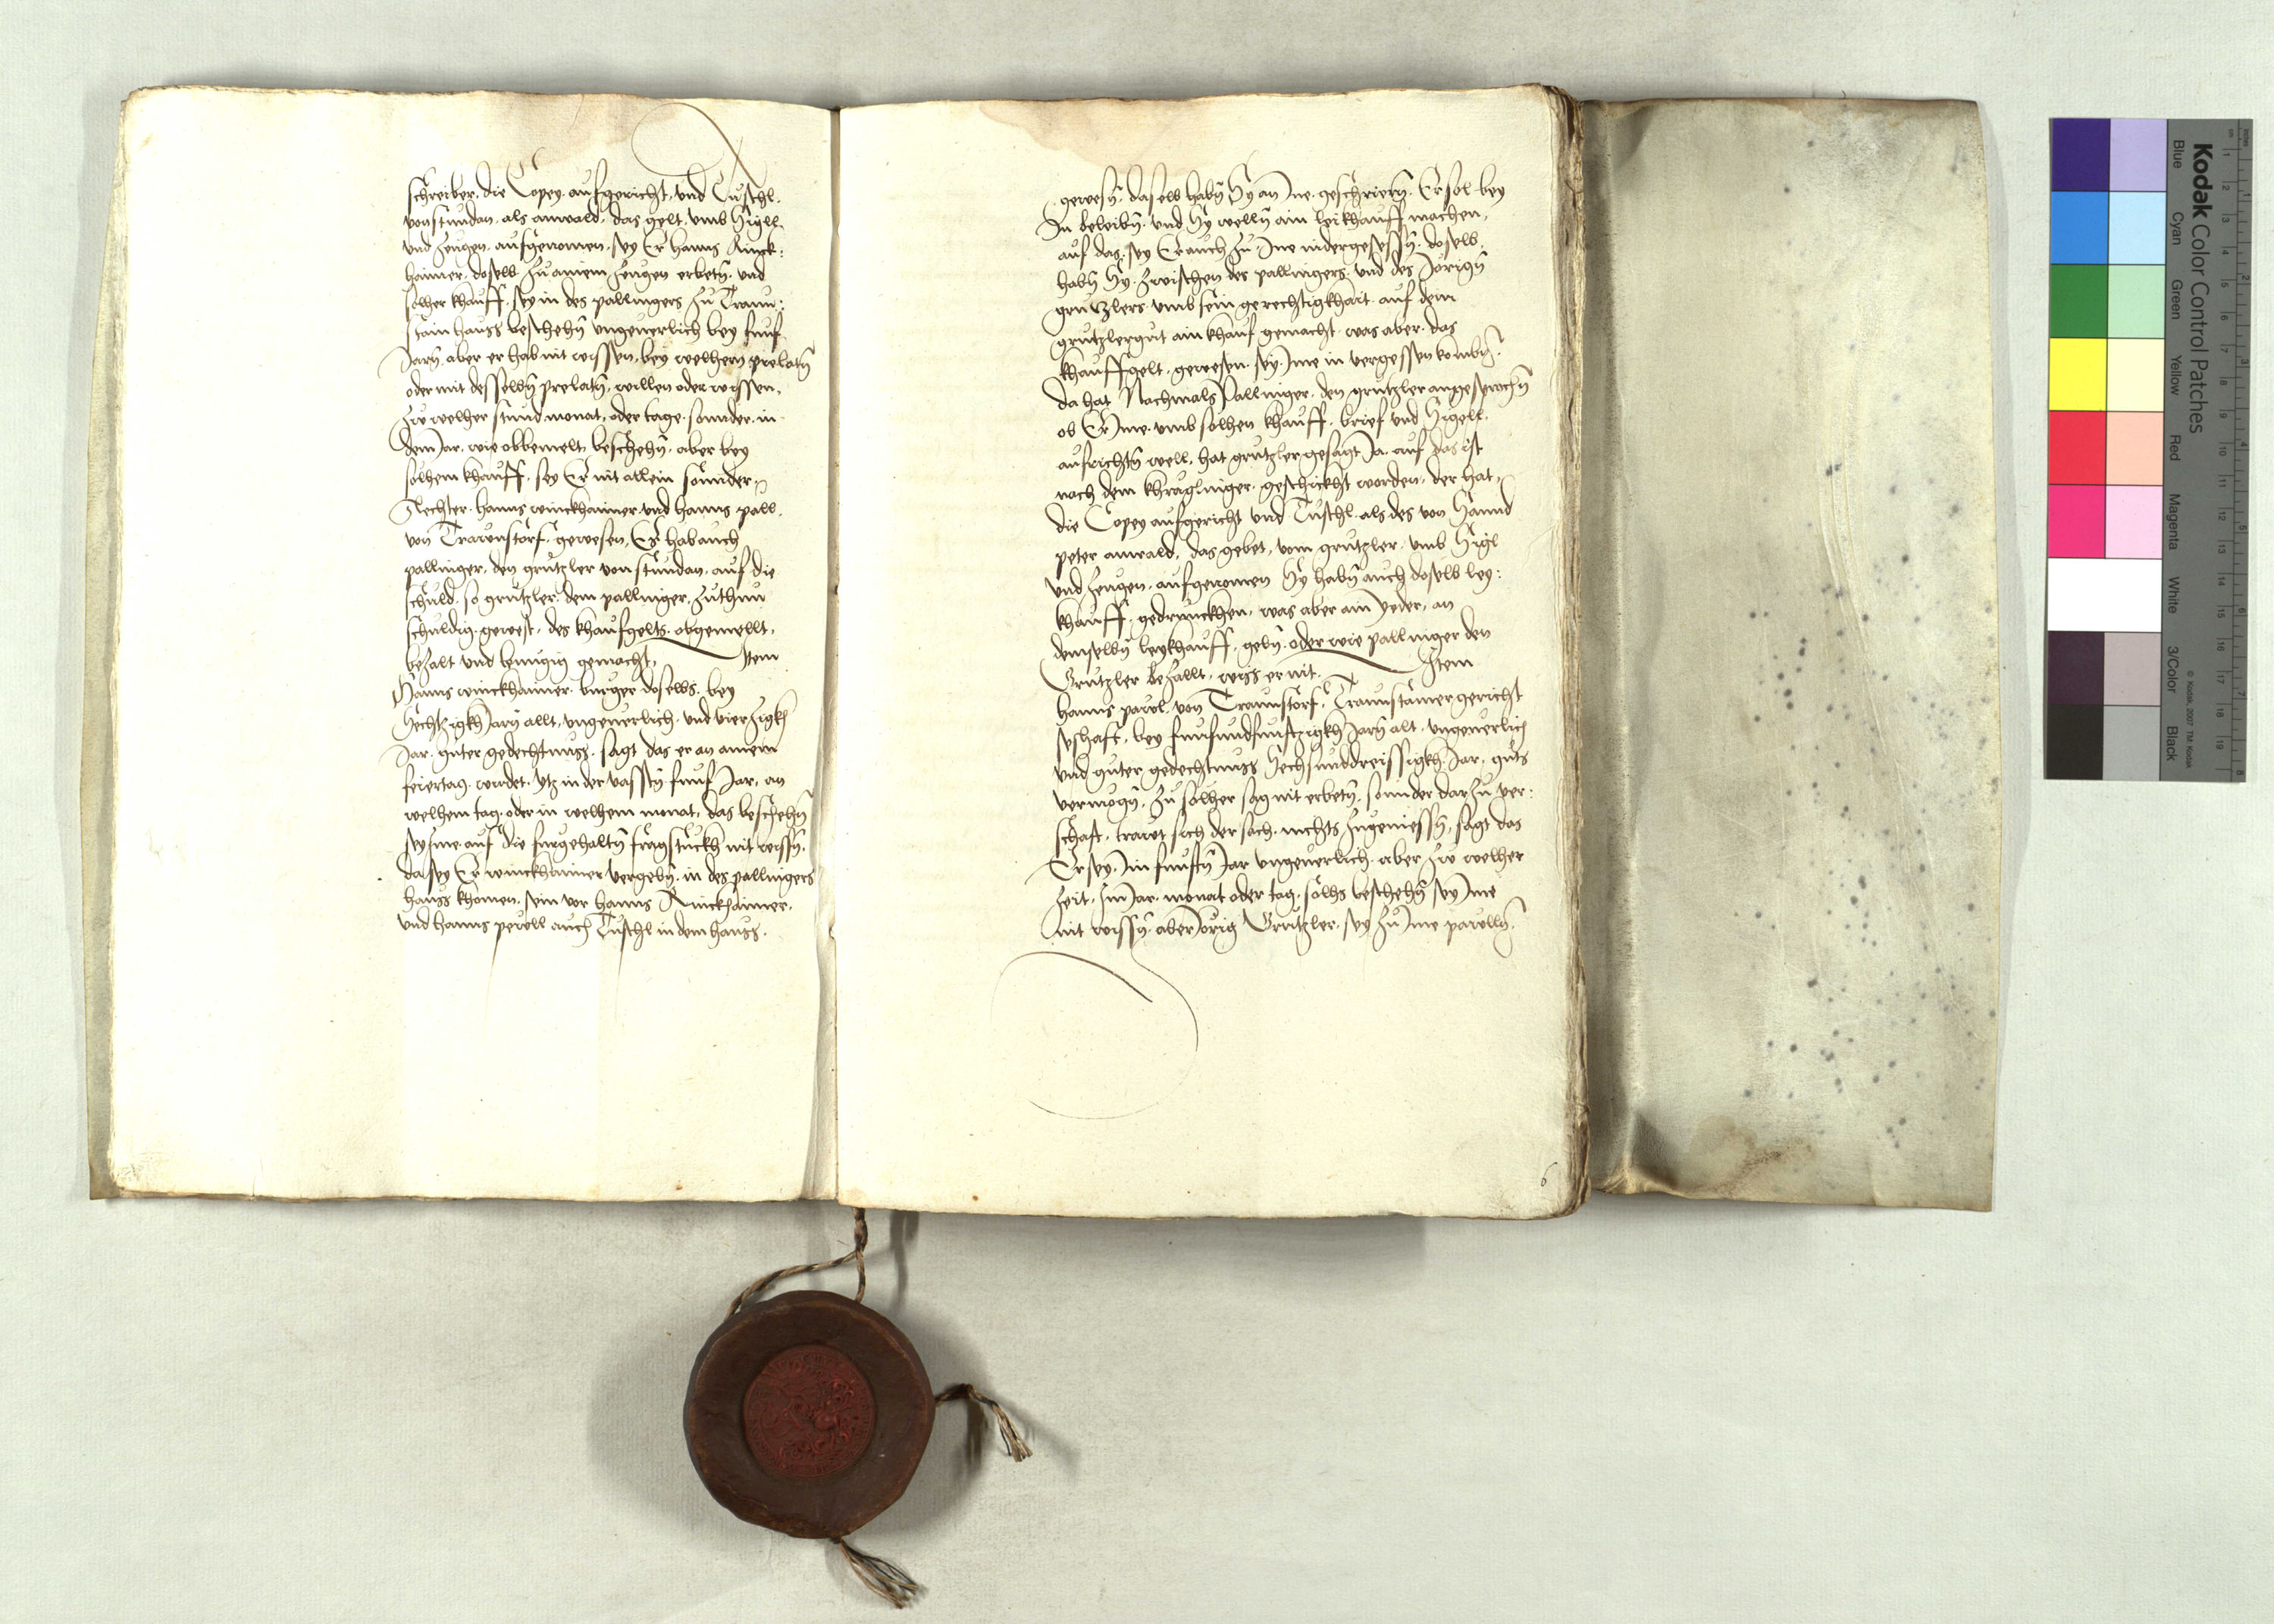 schreiber, die Copey. aufgericht. und Tuschl.
vonstundan. als anwald. das gelt. umb Sigll.
und zeugen. aufgenomen. sey Er hanns Rinck:
haimer. doselb zu ainem zeugen erbetn̄. und
solher khauff. sey in des pallingers zu Traun:
stain hauss beschehn̄ ungeuerlich bey funf
Jarn̄. aber er hab nit wissen. bey welhern prelatn̄
oder mit desselbn̄ prelatn̄. willen oder wissen.
Zw welher stund monat. oder tage. sonnder. in
dem Jar. wie obbemelt. beschehn̄. aber bey
solhem khauff. sey Er nit allein sonnder.
Aechter. hanns winckhaimer und hanns pall.
von Trawnstorf. gewesen. Er hab auch
pallinger. den grutzler von stundan. auf die
schuld. so grutzler. dem pallinger. zuthun
schuldig gewest. des khaufgelts. obgemellt.
bezalt und benugig gemacht. Item
Hanns winckhaimer. burger doselbs. bey
Sechtzigkh Jarn̄ allt. ungeuerlich. und vierzigkh
Jar. guter gedechtnuss. sagt das er an ainem
feiertag. wurdet. ytz in der vasstn̄ funf Jar. an
welhem tag. oder in welhem monat. das beschehn̄
sey Ime auf die furgehaltn̄ fragstuckh nit wissn̄.
da sey Er winckhaimer vergebn̄. in des pallingers
hauss khomen. sein vor hanns Rinckhaimer.
und hanns perell auch Tuschl in dem hauss.
gewesn̄. doselb habn̄ Sy an Ine. geschriern̄. Er sol bey
In beleibn̄. und Sy welln̄ ain leikhauff machen.
auf das. sey Er auch zu Ine nidergesessn̄. doselb.
habn̄ Sy. zwischen des pallingers. und des Jorign̄
grutzlers umb sein gerechtigkhait. auf dem
grutzlergut ain khauf gemacht was aber. das
khauffgelt. gewesen. sey. Ime in vergessen kombn̄.
da hat Nachmals Pallinger. den grutzler angesprochn̄
ob Er Ime. umb solhen khauff. brief und Sigell.
aufrichtn̄ well. hat grutzler gesagt Ja. auf das ist
nach dem khraglinger. geschickht worden. der hat.
die Copey aufgericht und Tuschl. als des von Sannd
peter anwald. das gebet. vom grutzler. umb Sigl
und zeugen. aufgenomen Sy habn̄ auch doselb ley:
khauff. gedrunckhen. was aber ain yeder. an
demselbn̄ leykhauff. gebn̄. oder wie pallinger den
Grutzler bezallt. wiss er nit. Item
hanns parol. von Traunstorf. Traunstainer gericht
sshafft. bey funfundfunftzigkh Jarn̄ alt. ungeuerlich
und guter gedechtnuss Sechsunddreissigkh Jar. guts
vermogn̄. zu solher sag nit erbetn̄. sonnder darzu ver:
schaft. trawt sich der sach. nichts zugeniessn̄. sagt das
Er sey. Im funftn̄ Jar ungeuerlich. aber zw welher
zeit. Im Jar. monat oder tag. solhs beschehn̄ sey Ime
nit wissn̄. aber Jorig Grutzler. sey zu Ime parolln̄.
6
Kodak Color Control Patches
Blue Cyan Green Yellow Red Magenta White 3/Color Black
© Kodak, 2007 TM: Kodak